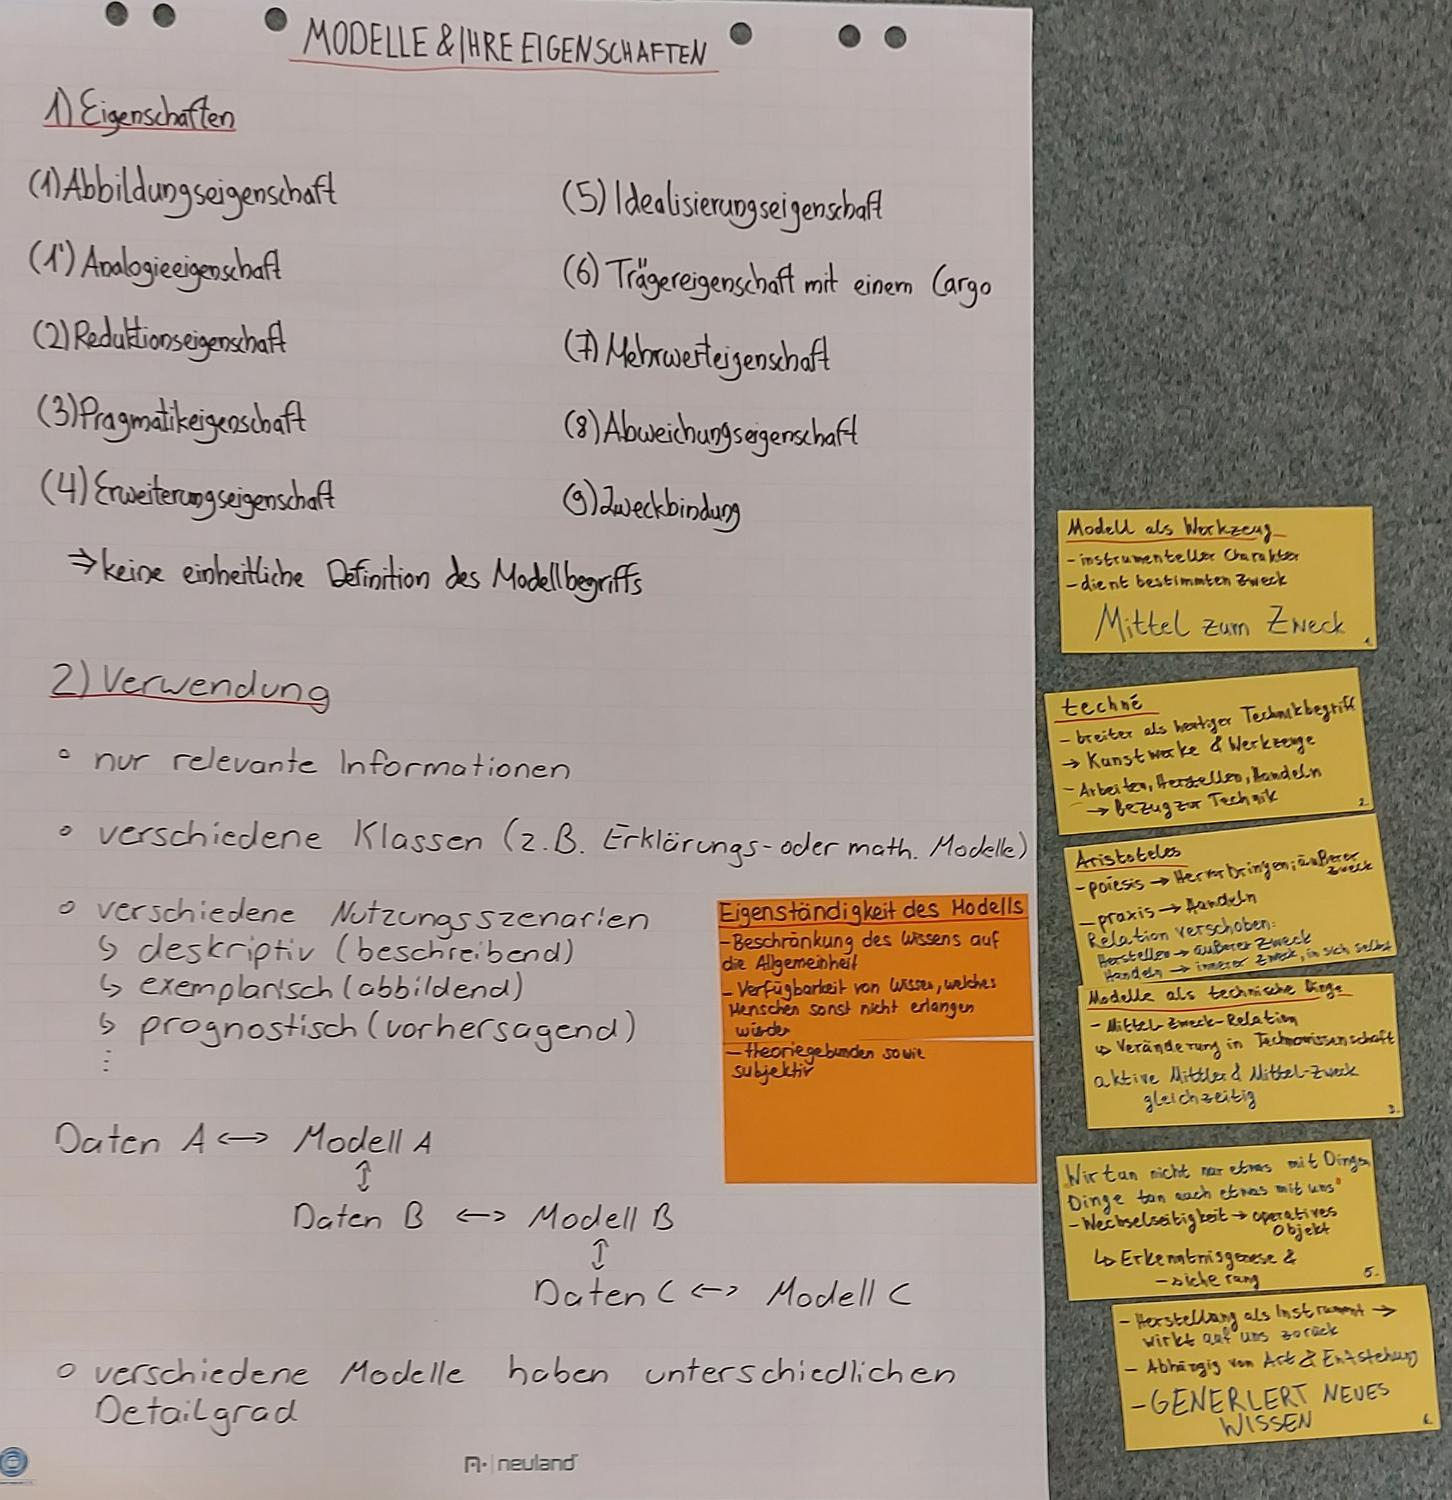 MODELLE & IHRE EIGENSCHAFTEN
1) Eigenschaften
(1) Abbildungseigenschaft
(1') Analogieeigenschaft
(2) Reduktionseigenschaft
(3) Pragmatikeigenschaft
(4) Erweiterungseigenschaft
(5) Idealisierungseigenschaft
(6) Trägereigenschaft mit einem Cargo
(7) Mehrwerteigenschaft
(8) Abweichungseigenschaft
(9) Zweckbindung
⇒ keine einheitliche Definition des Modellbegriffs
2) Verwendung
° nur relevante Informationen
° verschiedene Klassen (z.B. Erklärungs- oder math. Modelle)
° verschiedene Nutzungsszenarien
↳ deskriptiv (beschreibend)
↳ exemplarisch (abbildend)
↳ prognostisch (vorhersagend)
⋮
Daten A ↔ Modell A
↕
Daten B ↔ Modell B
↕
Daten C ↔ Modell C
° verschiedene Modelle haben unterschiedlichen
Detailgrad
neuland
Eigenständigkeit des Modells
- Beschränkung des Wissens auf
die Allgemeinheit
- Verfügbarkeit von Wissen, welches
Menschen sonst nicht erlangen
würden
- theoriegebunden sowie
subjektiv
Modell als Werkzeug
- instrumenteller Charakter
- dient bestimmten Zweck
Mittel zum Zweck
1.
techné
- breiter als heutiger Technikbegriff
→ Kunstwerke & Werkzeuge
- Arbeiten, Herstellen, Handeln
→ Bezug zur Technik
2.
Aristoteles
- poiesis → Hervorbringen; äußerer
Zweck
- praxis → Handeln
Relation verschoben:
Herstellen → äußerer Zweck
Handeln → innerer Zweck, in sich selbst
Modelle als technische Dinge
- Mittel-Zweck-Relation
↳ Veränderung in Technowissenschaft
aktive Mittler & Mittel-Zweck
gleichzeitig
3.
"Wir tun nicht nur etwas mit Dingen,
Dinge tun auch etwas mit uns"
- Wechselseitigkeit → operatives
Objekt
↳ Erkenntnisgenese &
-sicherung
5.
- Herstellung als Instrument →
wirkt auf uns zurück
- Abhängig von Art & Entstehung
- GENERIERT NEUES
WISSEN
6.